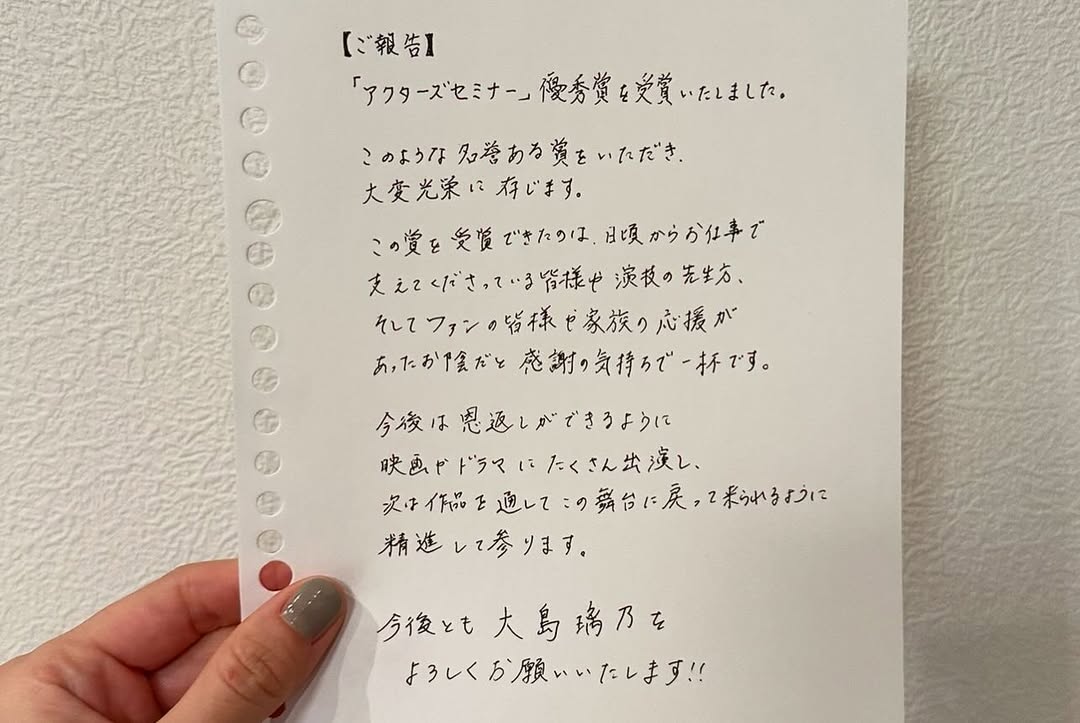 【ご報告】
「アクターズセミナー」優秀賞を受賞いたしました。
このような名誉ある賞をいただき、
大変光栄に存じます。
この賞を受賞できたのは、日頃からお仕事で
支えてくださっている皆様や演技の先生方、
そしてファンの皆様や家族の応援が
あったお陰だと感謝の気持ちで一杯です。
今後は恩返しができるように
映画やドラマにたくさん出演し、
次は作品を通してこの舞台に戻って来られるように
精進して参ります。
今後とも大島璃乃を
よろしくお願いいたします!!